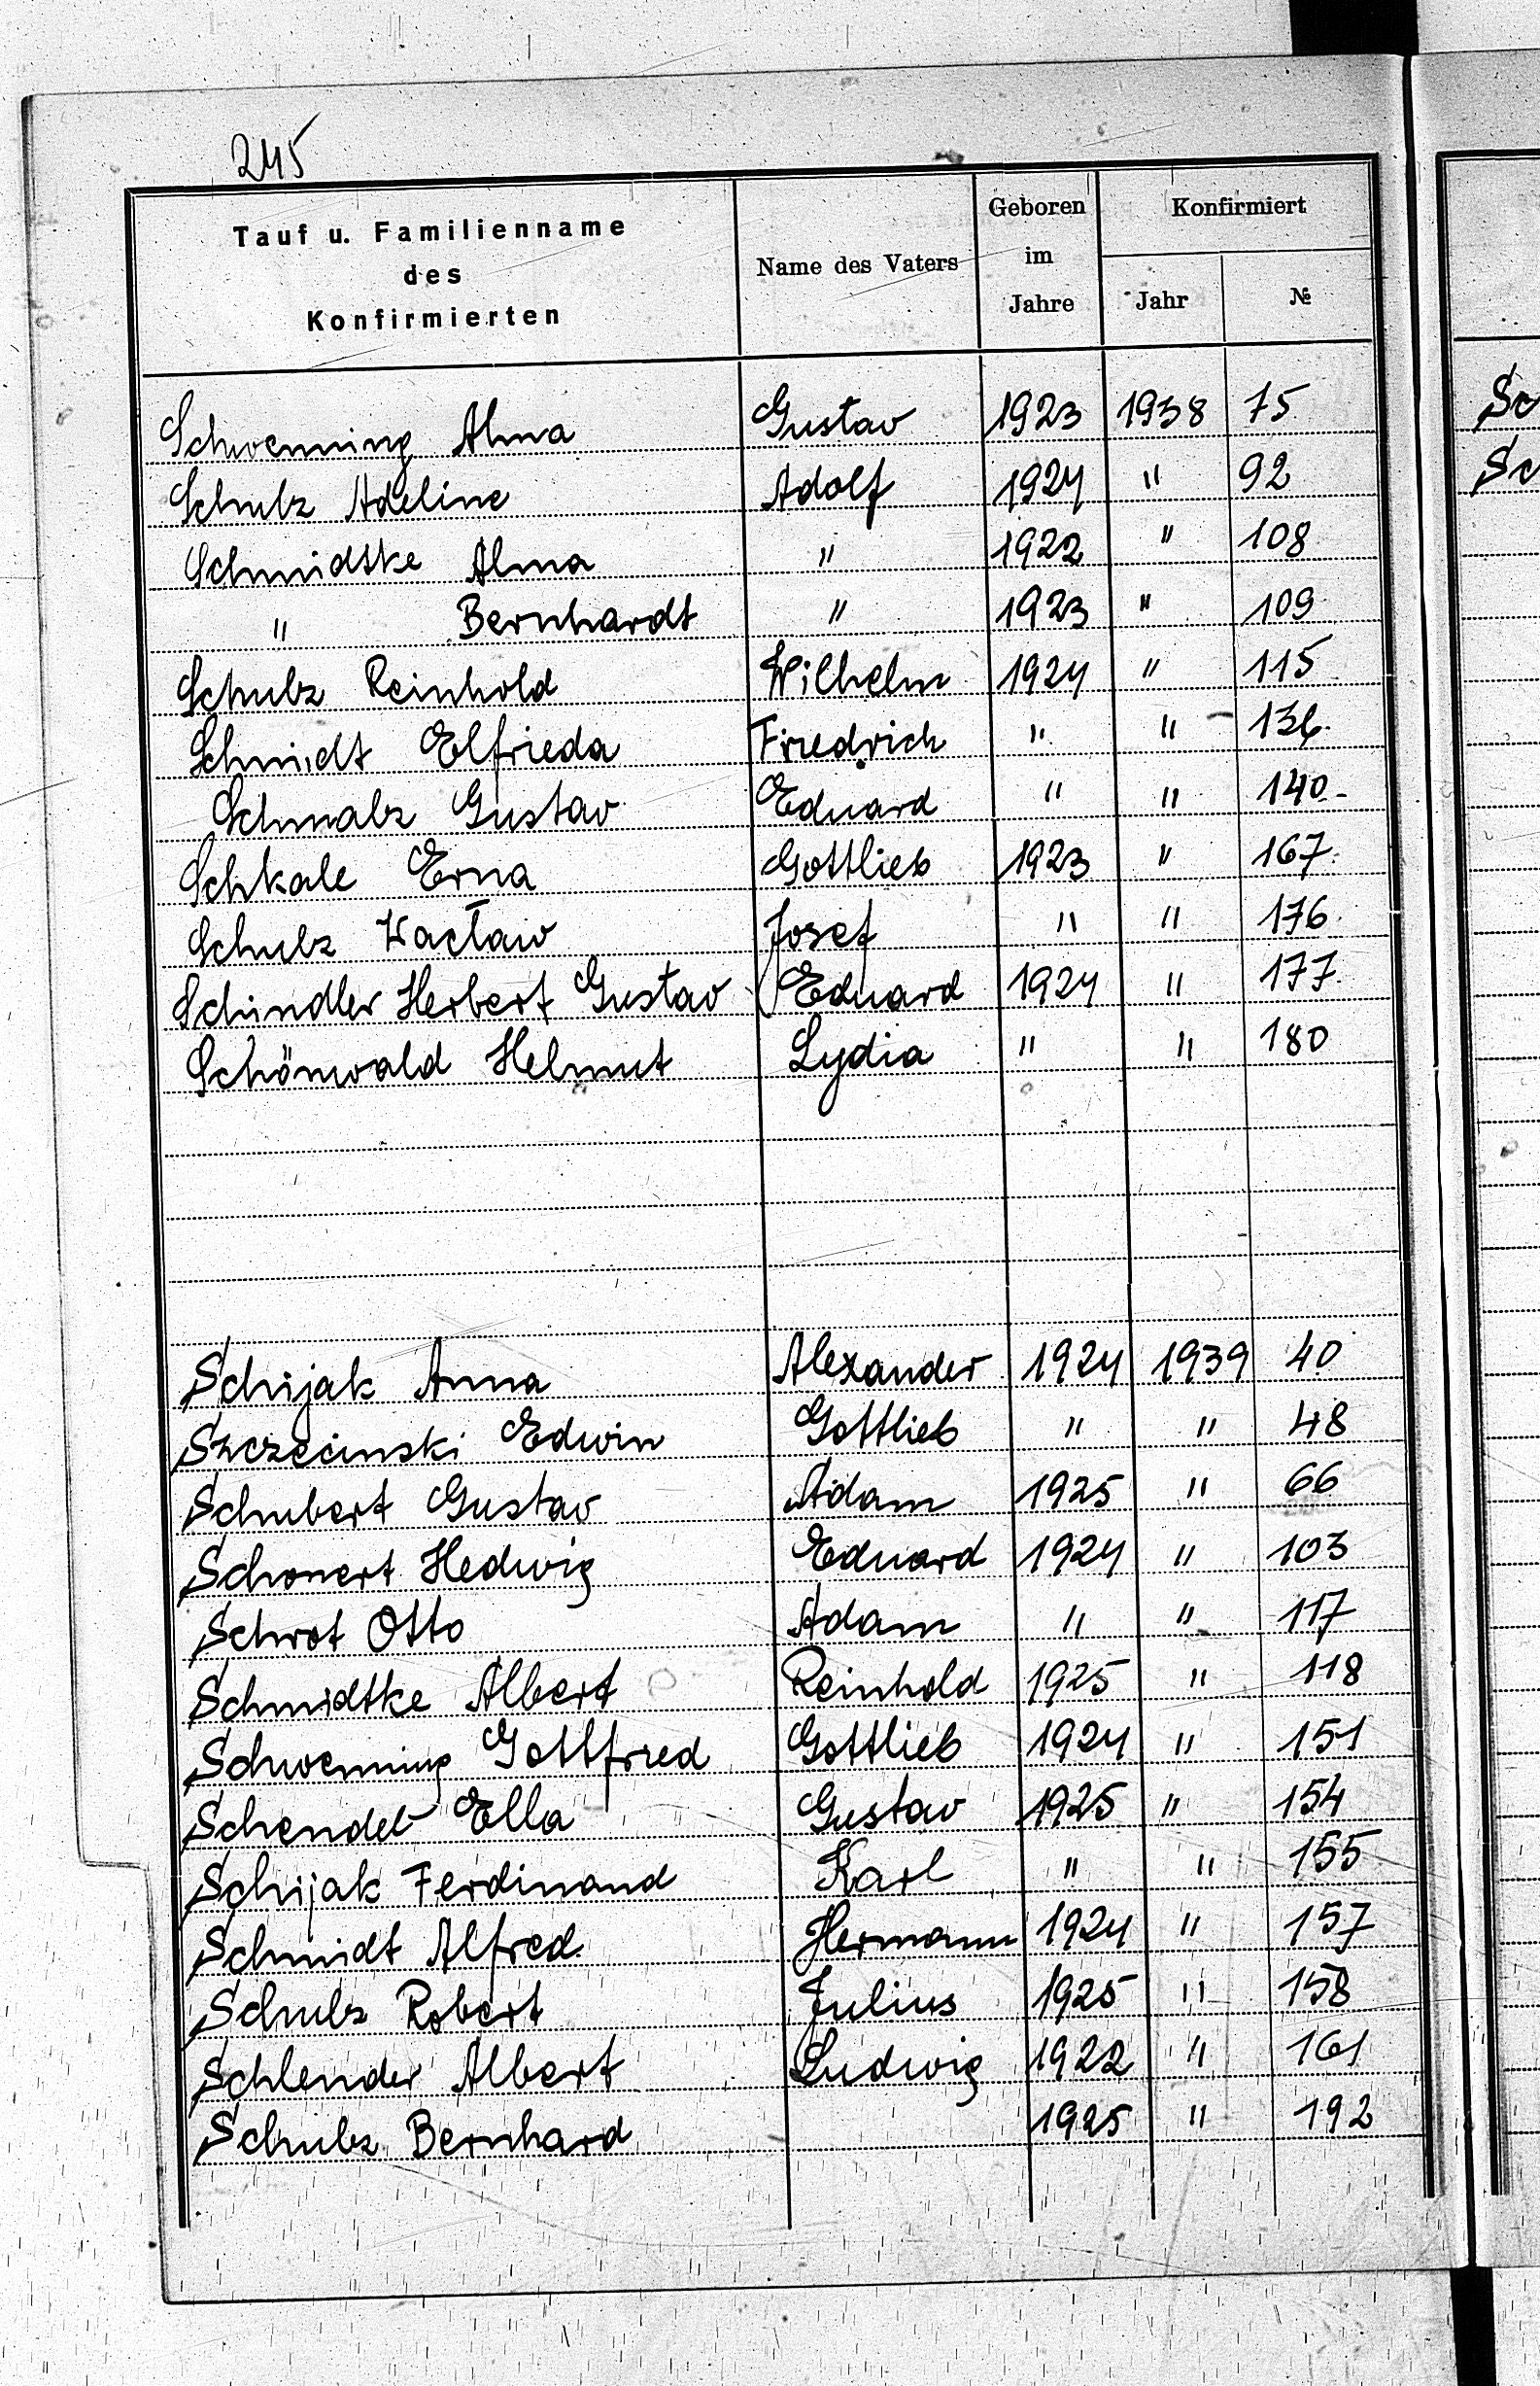 245
Tauf u. Familienname des Konfirmierten Name des Vaters Geboren im Jahre Konfirmiert Jahr №
Schwenning Alma Gustav 1923 1938 75
Schulz Adeline Adolf 1924 " 92
Schmidtke Alma " 1922 " 108
" Bernhardt " 1923 " 109
Schulz Reinhold Wilhelm 1924 " 115
Schmidt Elfrieda Friedrich " " 136
Schmalz Gustav Eduard " " 140
Schkale Erna Gottlieb 1923 " 167
Schulz Wacław Josef " " 176
Schindler Herbert Gustav Eduard 1924 " 177
Schönwald Helmut Lydia " " 180
Schijak Anna Alexander 1924 1939 40
Szczecinski Edwin Gottlieb " " 48
Schubert Gustav Adam 1925 " 66
Schonert Hedwig Eduard 1924 " 103
Schrot Otto Adam " " 117
Schmidtke Albert Reinhold 1925 " 118
Schwenning Gottfried Gottlieb 1924 " 151
Schendel Ella Gustav 1925 " 154
Schijak Ferdinand Karl " " 155
Schmidt Alfred Hermann 1924 " 157
Schulz Robert Julius 1925 " 158
Schlender Albert Ludwig 1922 " 161
Schulz Bernhard 1925 " 192